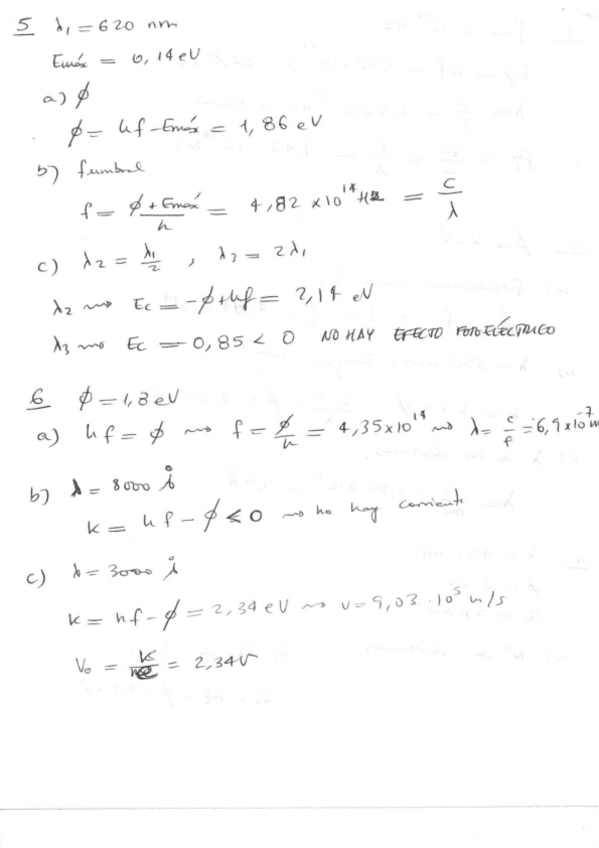 5 λ₁ = 620 nm
Emáx = 0,14 eV
a) ϕ
ϕ = hf - Emáx = 1,86 eV
b) fumbral
f = (ϕ + Emáx)/h = 4,82 x 10¹⁴ Hz = c/λ
c) λ₂ = λ₁/2 , λ₃ = 2λ₁
λ₂ ⇝ Ec = -ϕ + hf = 2,14 eV
λ₃ ⇝ Ec = 0,85 < 0 NO HAY EFECTO FOTOELÉCTRICO
6 ϕ = 1,8 eV
a) hf = ϕ ⇝ f = ϕ/h = 4,35 x 10¹⁴ ⇝ λ = c/f = 6,9 x 10⁻⁷ m
b) λ = 8000 Å
K = hf - ϕ ≤ 0 ⇝ no hay corriente
c) λ = 3000 Å
K = hf - ϕ = 2,34 eV ⇝ v = 9,03 · 10⁵ m/s
V₀ = K/e = 2,34 V